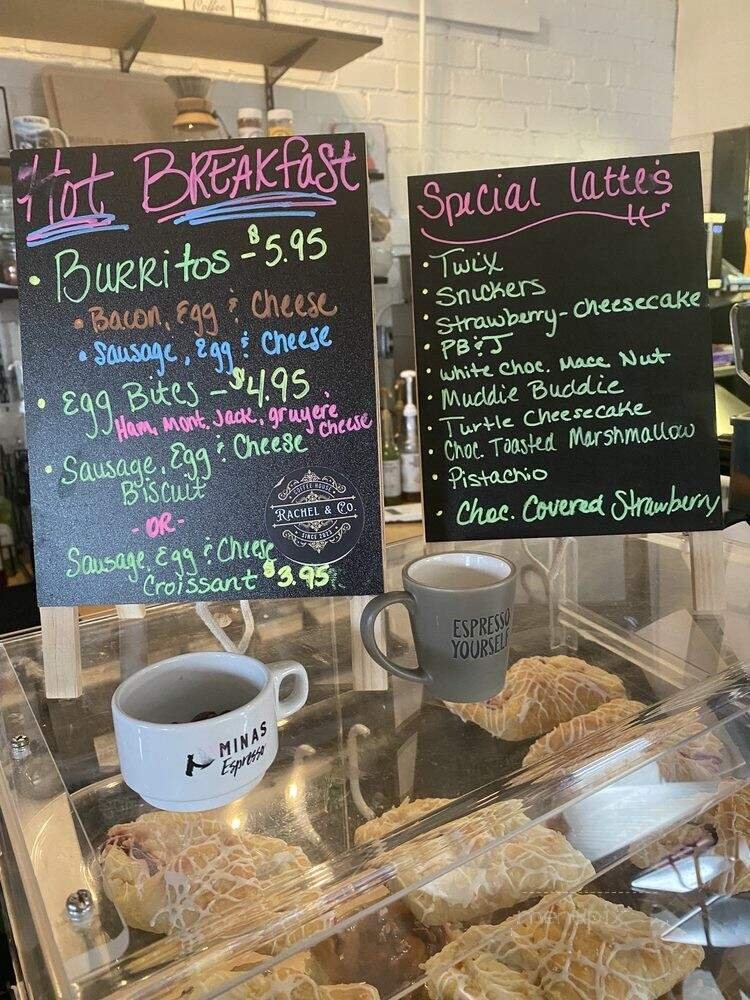 Coffee
Hot BREAKfast
• Burritos - $5.95
• Bacon, Egg & Cheese
• Sausage, Egg & Cheese
• Egg Bites - $4.95
Ham, Mont. Jack, gruyere
cheese
• Sausage, Egg & Cheese
Biscuit
- OR -
Sausage, Egg & Cheese
Croissant $3.95
COFFEE HOUSE
RACHEL & CO.
SINCE 2023
Special latte's
• Twix
• Snickers
• Strawberry-cheesecake
• PB&J
• white choc. Mace Nut
• Muddie Buddie
• Turtle Cheesecake
• Choc. Toasted Marshmallow
• Pistachio
• Choc. Covered Strawberry
ESPRESSO
YOURSELF
MINAS
Espresso
menupix